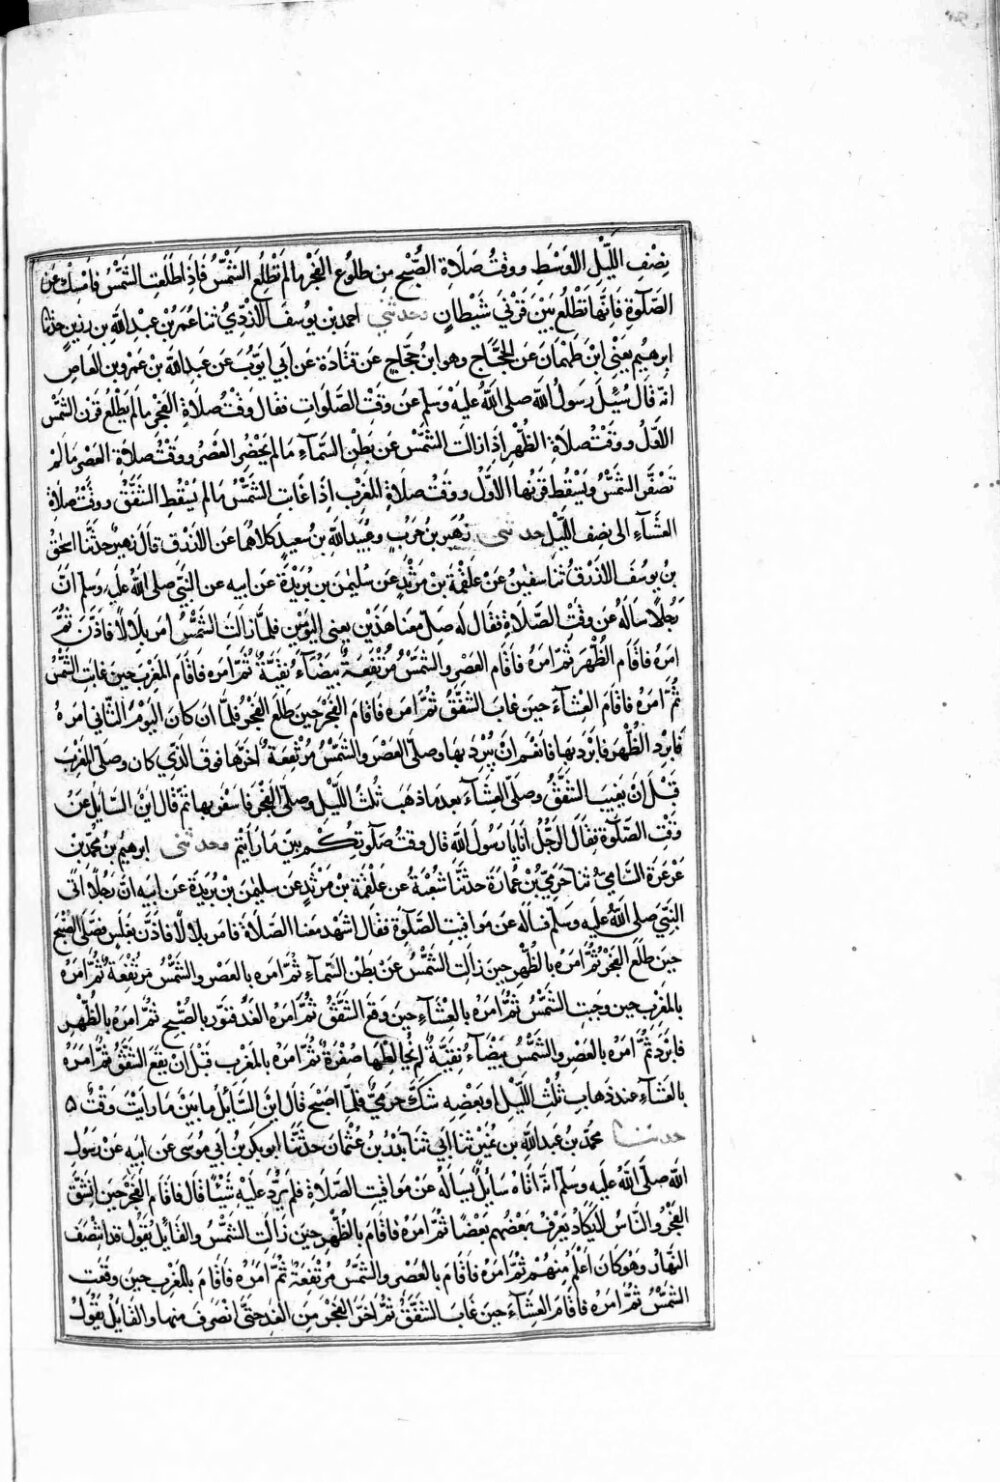 نِصْفِ اللَّيْلِ الاَوسَطِ ووقتُ صَلَاةِ الصُّبْحِ مِن طلُوُع الفَجر مالم تَطْلُعِ الشَّمْسُ فَاِذَا طَلَعَتِ الشَمْسُ فامْسِكْ عَنِ
الصَّلَوةِ فَاِنَّهَا تَطْلُعُ بَيْنَ قَرْنَيْ شَيْطَانٍ وحدثني احمد بن يوسُفَ الاَزْدِيُّ ثنا عُمَرُ بْنُ عبدِ اللّهِ بن رَزِينٍ حدثنا
ابرهيم يَعْنِي ابْنَ طَهْمَانَ عَنِ الحَجَّاجِ وهو ابنُ حَجَّاجٍ عَن قَتَادَةَ عن اَبي اَيّوُبَ عَن عَبدِ اللّه بن عَمْرو بن العَاصِ
انه قَالَ سُئِلَ رَسُولُ اللّه صلى اللّهُ عليهِ وَسَلّم عَن وَقتِ الصَّلَوَاتِ فقَال وَقْتُ صَلَاةِ الفَجْرِ مالم يَطْلُع قَرْن الشَّمْسِ
الاَوّلُ ووقتُ صلاةِ الظُّهْرِ اِذَا زَالَتِ الشَّمْسُ عَن بَطْنِ السَّمَآءِ مالم يَحْضُرِ العَصْرُ ووقْتُ صلاةِ العَصْرِ مَا لَمْ
تَصْفَرَّ الشَمْسُ ويَسْقُط قَرْنُها الاَوّلُ ووقتُ صَلاةِ المَغْرِبِ اِذَا غَابَتِ الشَّمْسُ مَالم يَسْقُطِ الشَّفَقُ ووقْتُ صلاةِ
العشَآءِ الى نِصفِ اللَّيْلِ حدثنى زُهَيْر بن حَرْبٍ وعُبَيد اللّهِ بن سعيدٍ كلاهُما عَن الاَزْرَقِ قال زهيرٌ حدّثَنَا اسحٰقُ
بنُ يوسُفَ الاَزْرَقُ ثنا سفيٰنُ عَنْ عَلْقَمَةَ بن مَرْثَدٍ عَن سُليمٰنَ بن بُرَيْدَةَ عَن ابيه عن النَّبِيّ صلى اللّهُ عليه وسلم اَنَّ
رَجُلًا سَاَلَهُ عَن وَقْتِ الصَّلَاةِ فقَال لَه صَلّ معَنَا هٰذَيْن يعنى اليَوْمَيْنِ فلمّا زَالَتِ الشَمْسُ اَمَرَ بلَالًا فاَذَّنَ ثُمَّ
امَرَهُ فَاقَام الظُّهْرَ ثُمّ امَرَهُ فاَقَام العَصْرَ والشَّمْسُ مُرْتَفِعَةٌ بَيْضَآءُ نَقِيَّةٌ ثُمّ امَره فاَقَام المَغْرِبَ حِينَ غَابَتِ الشَّمْسُ
ثُمّ اَمَرَهُ فَاَقَامَ العِشَآءَ حينَ غابَ الشَّفَقُ ثُمّ امَرَهُ فَاقَام الفَجْرَ حِينَ طَلَعَ الفَجْرُ فلمّا ان كَانَ اليَوْمُ الثَّانِي امَرهُ
فَابْرَد الظُّهْرَ فابْرَد بها فَانْعَمَ اَنْ يُبْرِدَ بها وصلّى العَصْرَ والشَّمْسُ مُرْتَفِعَةٌ اَخّرَهَا فوقَ الذي كان وصلّى المَغْرِبَ
قَبْلَ اَنْ يَغِيبَ الشَّفَقُ وصلّى العِشَآءَ بعد ما ذهَبَ ثُلُثُ اللَّيْلِ وصلّى الفَجْرَ فاسْفَر بها ثمّ قال اَيْنَ السّآئلُ عَنْ
وَقتِ الصَّلَوةِ فقَال الرَّجُلُ اَنَا يَا رَسُولَ اللّه قال وقتُ صَلَوتِكُم بَيْنَ مَا رَاَيْتُم وحدثنى ابرهيم بن محُمّد بن
عَرْعَرَةَ السَّامِيُّ ثنا حَرَمِيُّ بن عُمَارَةَ حدثنَا شعْبَةُ عَن عَلقَمَةَ بن مَرْثَدٍ عَن سليمٰن بن بُرَيْدَةَ عَن اَبيه انَّ رَجُلًا اَتَى
النَّبِيَّ صلى اللّهُ عليه وسلّم فسَاله عَن مَوَاقِيتِ الصَّلَوةِ فقَال اشْهَد مَعَنا الصَّلَاةَ فامَر بلالًا فاَذَّنَ بغَلَسٍ فصَلّى الصُّبْحَ
حينَ طَلَعَ الفَجْرُ ثُمّ امَرَهُ بالظُّهْرِ حِينَ زَالَتِ الشَّمْسُ عَنْ بَطْنِ السَّمَآءِ ثُمّ امَره بالعَصْرِ والشَّمْسُ مُرتَفِعَةٌ ثُمّ امَرهُ
بالمَغْرِبِ حين وجَبَتِ الشَّمْسُ ثُمّ اَمَرهُ بالعِشَآءِ حِينَ وقَعَ الشَّفَقُ ثُمّ امَرَه الغَدَ فنَوّر بالصُّبْحِ ثُمّ امَرهُ بالظُّهْرِ
فابْرَد ثُمّ امَره بالعَصْرِ والشَّمْسُ بَيْضَآءُ نَقِيَّةٌ لم تُخَالِطْهَا صُفْرَةٌ ثُمّ امَرَهُ بالمَغْربِ قَبْلَ اَنْ يقَعَ الشَّفَقُ ثُمّ امَرهُ
بالعشَآءِ عند ذهَابِ ثُلُثِ اللَّيْلِ او بَعْضِهِ شكَّ حرَمِيٌّ فلمّا اصْبَحَ قال اَيْنَ السَّآئِلُ ما بَيْنَ مَا رَايْتَ وَقْتٌ ه
حدثنا محُمّد بن عَبدِ اللّه بن نُمَيْرٍ ثنا اَبي ثنَا بَدْرُ بن عُثمَانَ حدثَنَا ابو بكر بنُ اَبي مُوسَى عَن اَبيهِ عَنْ رَسُولِ
اللّه صَلّى اللّهُ عليه وسلّم انَّهُ اتَاهُ سَائِلٌ يَسْاَلُهُ عَنْ مَوَاقيتِ الصَّلَاةِ فلم يَرُدَّ عليْهِ شَيْئًا قَالَ فاقَام الفَجْرَ حينَ انْشَقَّ
الفَجْرُ والنَّاسُ لَا يَكَادُ يَعْرِفُ بَعْضُهُم بَعْضًا ثُمّ امَرَهُ فاقَامَ بالظُّهْرِ حِينَ زَالَتِ الشَّمْسُ والقَآئِلُ يَقُولُ قد انْتَصَفَ
النَّهَارُ وَهُوَ كان اَعْلَمَ مِنْهُم ثُمّ امَرَهُ فَاَقَامَ بالعَصْرِ والشَّمْسُ مُرْتَفِعَةٌ ثُمَّ اَمَرَهُ فَاَقَامَ بالمَغْرِبِ حِينَ وقَعَتِ
الشَّمْسُ ثُمّ امَرَهُ فاَقَام العِشَآءَ حينَ غابَ الشَّفَقُ ثُمّ اخَّرَ الفَجْرَ مِنَ الغَدِ حَتَّى انْصَرَفَ منها والقَآئِلُ يَقُولُ